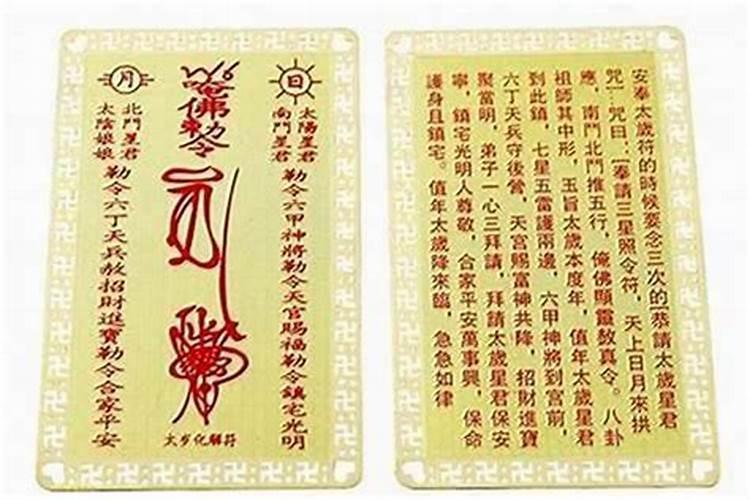 日
太陽星君
南鬥星君
勒令六甲神將勒令天官賜福勒令鎮宅光明
唵佛勅令
太岁化解符
月
北鬥星君
太陰娘娘
勒令六丁天兵赦招財進寶勒令合家平安
安奉太歲符的時候要念三次的[恭請太歲星君
咒]…咒曰:[奉請三星照令符,天上日月來拱
應,南鬥北鬥推五行,俺佛顯靈敕真令。八卦
祖師其中形,玉旨太歲本度年,值年太歲星君
到此鎮,七星五雷護兩邊,六甲神將到宮前,
六丁天兵守後營,天官賜富神共降,招財進寶
聚當明,弟子一心三拜請,拜請太歲星君保安
寧,鎮宅光明人尊敬,合家平安萬事興,保命
護身且鎮宅。值年太歲降來臨,急急如律